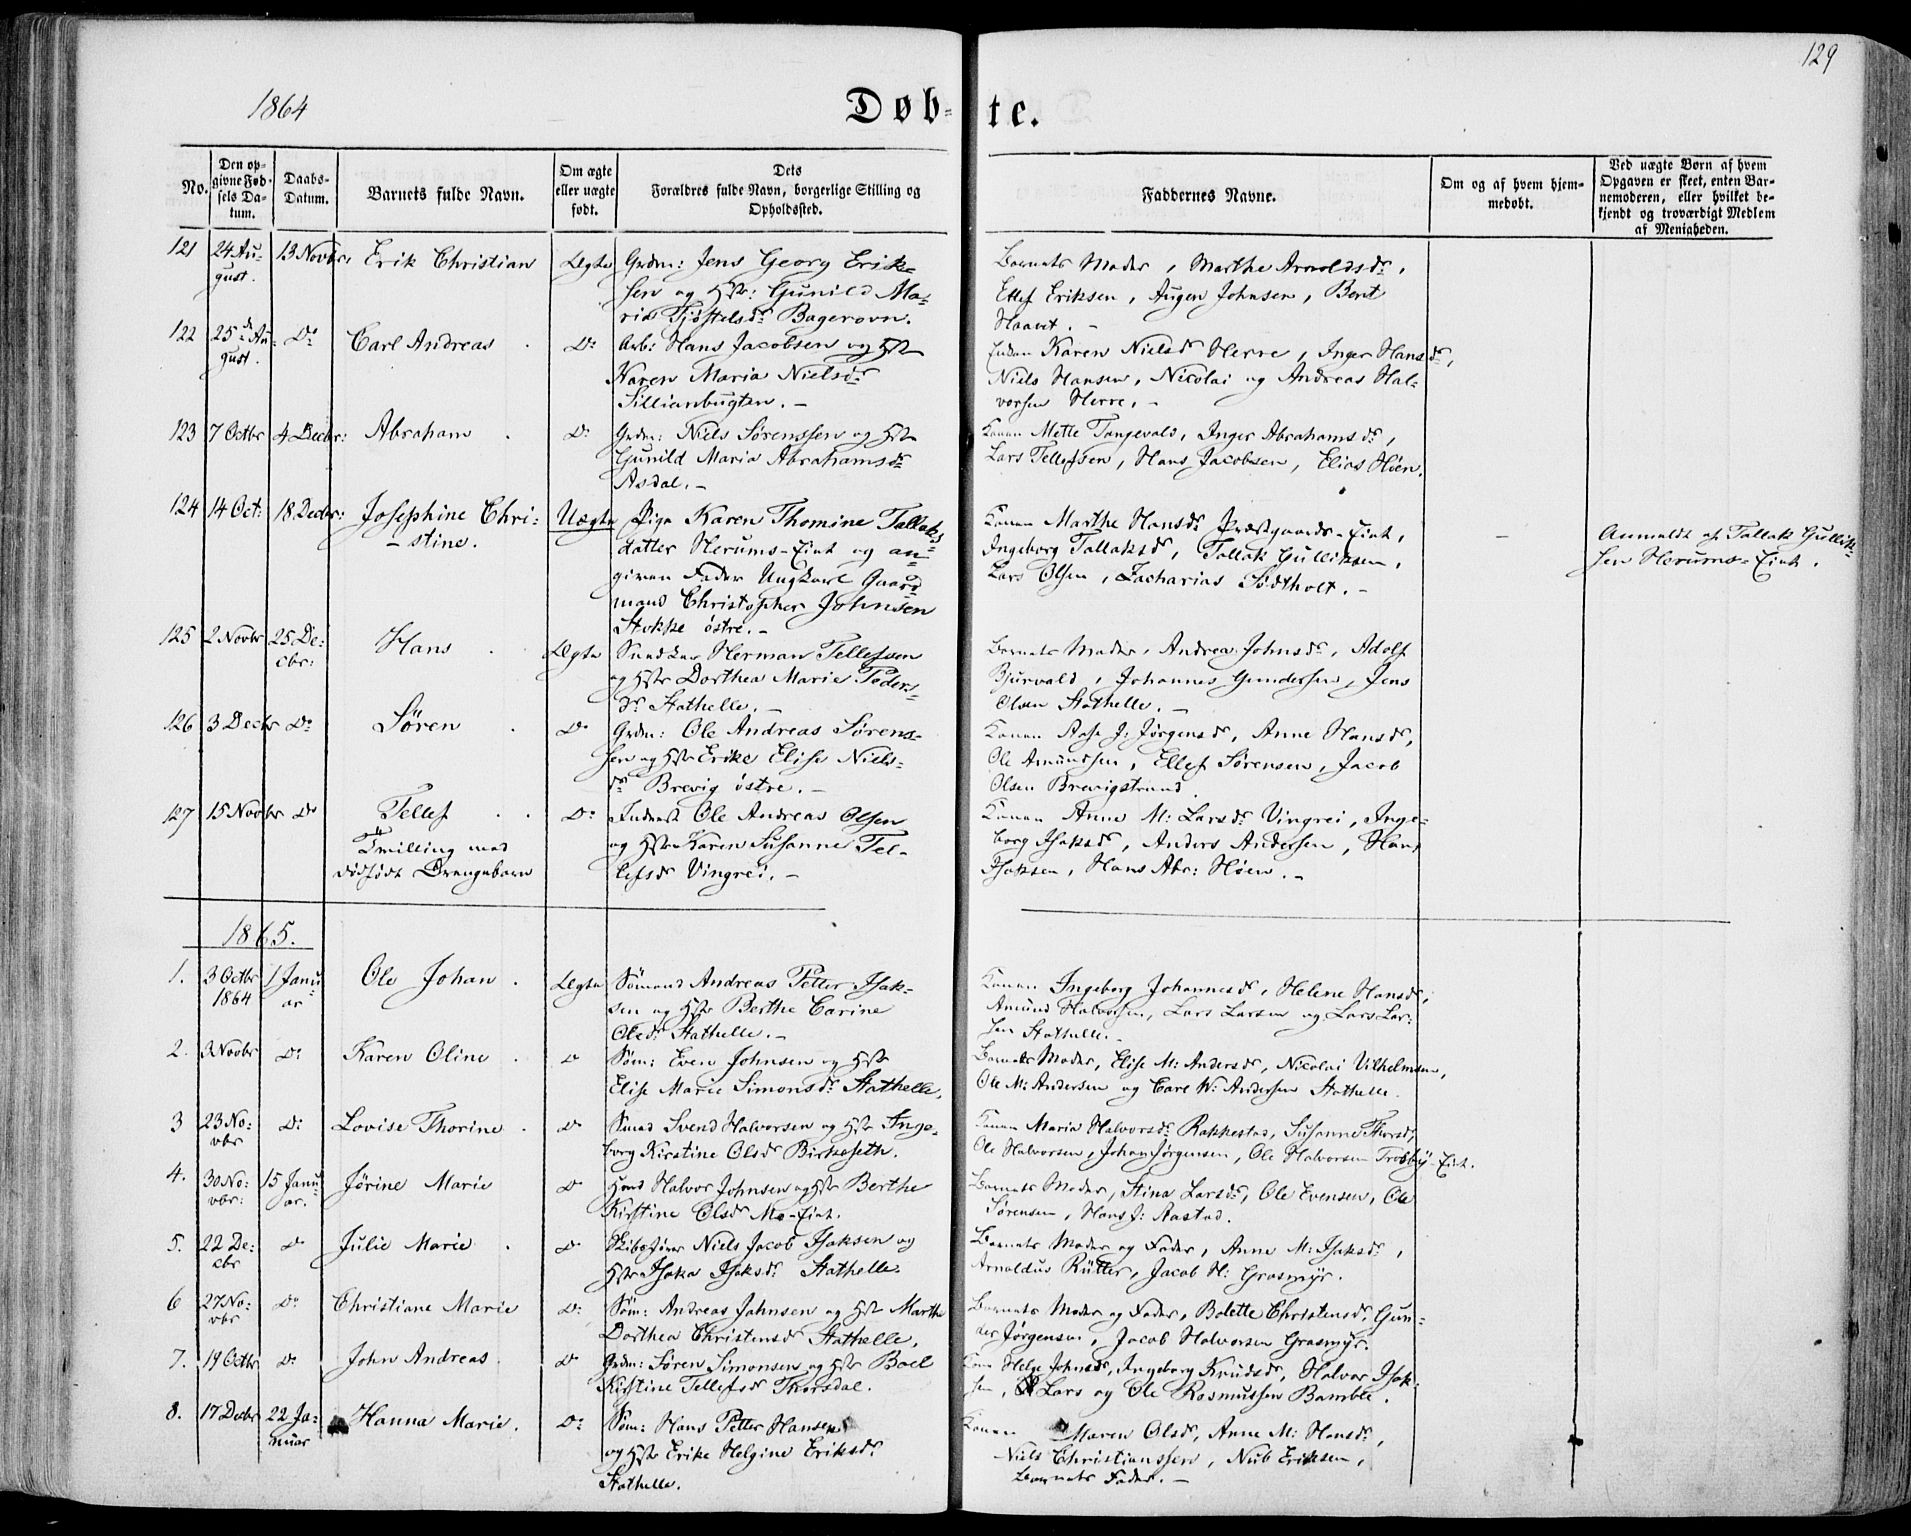 129
1864
Døb- te.
No.
Den op-
givne Fød-
sels Da-
tum.
Daabs-
Datum.
Barnets fulde Navn.
Om ægte
eller uægte
født.
Dets
Forældres fulde Navn, borgerlige Stilling og
Opholdssted.
Faddernes Navne.
Om og af hvem hjem-
medøbt.
Ved uægte Børn af hvem
Opgaven er skeet, enten Bar-
nemoderen, eller hvilket be-
kjendt og troværdigt Medlem
af Menigheden.
121 24 Au-
gust.
13 Novbr. Erik Christian Ægte
Grdm: Jens Georg Erik-
sen og Hstr: Gunild Ma-
ria Tjøstelsdr Bagerovn.
Barnets Moder, Marthe Arnoldsdr,
Ellef Eriksen, Augen Johnsen, Bent
Haavet. -
122 25de Au-
gust.
Do Carl Andreas Do
Arb: Hans Jacobsen og Hstr
Karen Maria Nielsdr
Sillianbugten. -
Karen Nielsd Herre, Inger Hansdr,
Niels Hansen, Nicolai og Andreas Hal-
vorsen Herre. -
123 7 Octbr 4 Decbr: Abraham Do
Grdm: Niels Sørenssen og Hstr
Gunild Maria Abrahamsdr
Asdal. -
Konen Mette Tangevald, Inger Abrahamsdr,
Lars Tellefsen, Hans Jacobsen, Elias Høen.
124 14 Oct: 18 Decbr: Josephine Chri-
- stine.
Uægte
Pige Karen Thomine Tallaks-
datter Herums-Eiet og an-
given Fader Ungkarl Gaard-
mand Christopher Johnsen
Stokke østre. -
Konen Marthe Hansdr Præstgaards-Eiet,
Ingeborg Tallaksdr, Tallak Gulliksen,
Lars Olsen, Zacharias Sødtholt. -
-
Anmeldt af Tallak Gullik-
sen Herums-Eiet.
125 2 Novbr 25 De-
cbr:
Hans Ægte
Herman Tellefsen
og Hstr Dorthea Marie Peders-
dr Stathelle. -
Barnets Moder, Andrea Johnsdr, Adolf
Bjurvald, Johannes Gundersen, Jens
Olsen Stathelle. -
126 3 Decbr Do Søren Do
Grdm: Ole Andreas Sørens-
sen og Hstr Erike Elise Niels-
dr Brevig østre. -
Konen Aase J: Jørgensd, Anne Hansdr,
Ole Amundsen, Ellef Sørensen, Jacob
Olsen Brevigstrand.
127 15 Novbr Do Tellef
Tvilling med
dødfødt Drengebarn
Do
Inderst Ole Andreas Olsen
og Hstr Karen Susanne Tel-
lefsdr Vingrei. -
Konen Anne M: Larsdr Vingrei, Inge-
borg Isaksdr, Anders Andersen, Hans
Isaksen, Hans Abr: Høen. -
1865.
1. 3 Octbr
1864
1 Janu-
ar
Ole Johan. Ægte
Sømand Andreas Petter Isak-
sen og Hstr Berthe Carine
Olsdr Stathelle. -
Konen Ingeborg Johannesdr, Helene Hansdr,
Amund Halvorsen, Lars Larsen og Lars Lar-
sen Stathelle. -
2. 3 Novbr Do Karen Oline Do
Søm: Even Johnsen og Hstr
Elise Marie Simonsdr Stathelle.
Barnets Moder, Elise M: Andersdr, Nicolai Vilhelmsen,
Ole M: Andersen og Carl W: Andersen Stathelle.
3 23 No-
vbr
Do Lovise Thorine Do
Smed Svend Halvorsen og Hstr Inge-
borg Kirstine Olsdr Birkeseth.
Konen Maria Halvorsdr Rakkestad, Susanne Thorsdr,
Ole Halvorsen, Johan Jørgensen, Ole Halvorsen Trosby-Eiet.
4. 30 No-
vbr:
15 Janu-
ar.
Jørine Marie Do
Halvor Johnsen og Hstr Berthe
Kirstine Olsdr Mo-Eiet.
Barnets Moder, Stina Larsdr, Ole Evensen, Ole
Sørensen, Hans J: Rastad.
5. 22 De-
cbr
Do Julie Marie Do
Skibsfører Niels Jacob Isaksen og
Hstr Isaka Isaksdr Stathelle.
Barnets Moder og Fader, Anne M: Isaksdr,
Arnoldus Rütter, Jacob H: Grasmyr.
6 27 No-
vbr
Do Christiane Marie Do
Søm: Andreas Jahnsen og Hstr Marthe
Dorthea Christensdr Stathelle.
Barnets Moder og Fader, Bolette Christensdr, Gun-
der Jørgensen, Jacob Halvorsen Grasmyr.
7. 19 Octbr Do John Andreas Do
Grdm: Søren Simonsen og Hstr Boel
Kirstine Tellefsdr Thorsdal.
Kone Helge Johnsdr, Ingeborg Knudsdr, Halvor Isak-
sen, Lars og Ole Rasmussen Bamble.
8. 17 Decbr 22 Ja-
nuar
Hanna Marie. Do
Søm: Hans Petter Hansen
og Hstr Erike Helgine Eriksdr
Stathelle.
Konen Maren Olsdr, Anne M: Hansdr,
Niels Christianssen, Nub Eriksen,
Barnets Fader. -